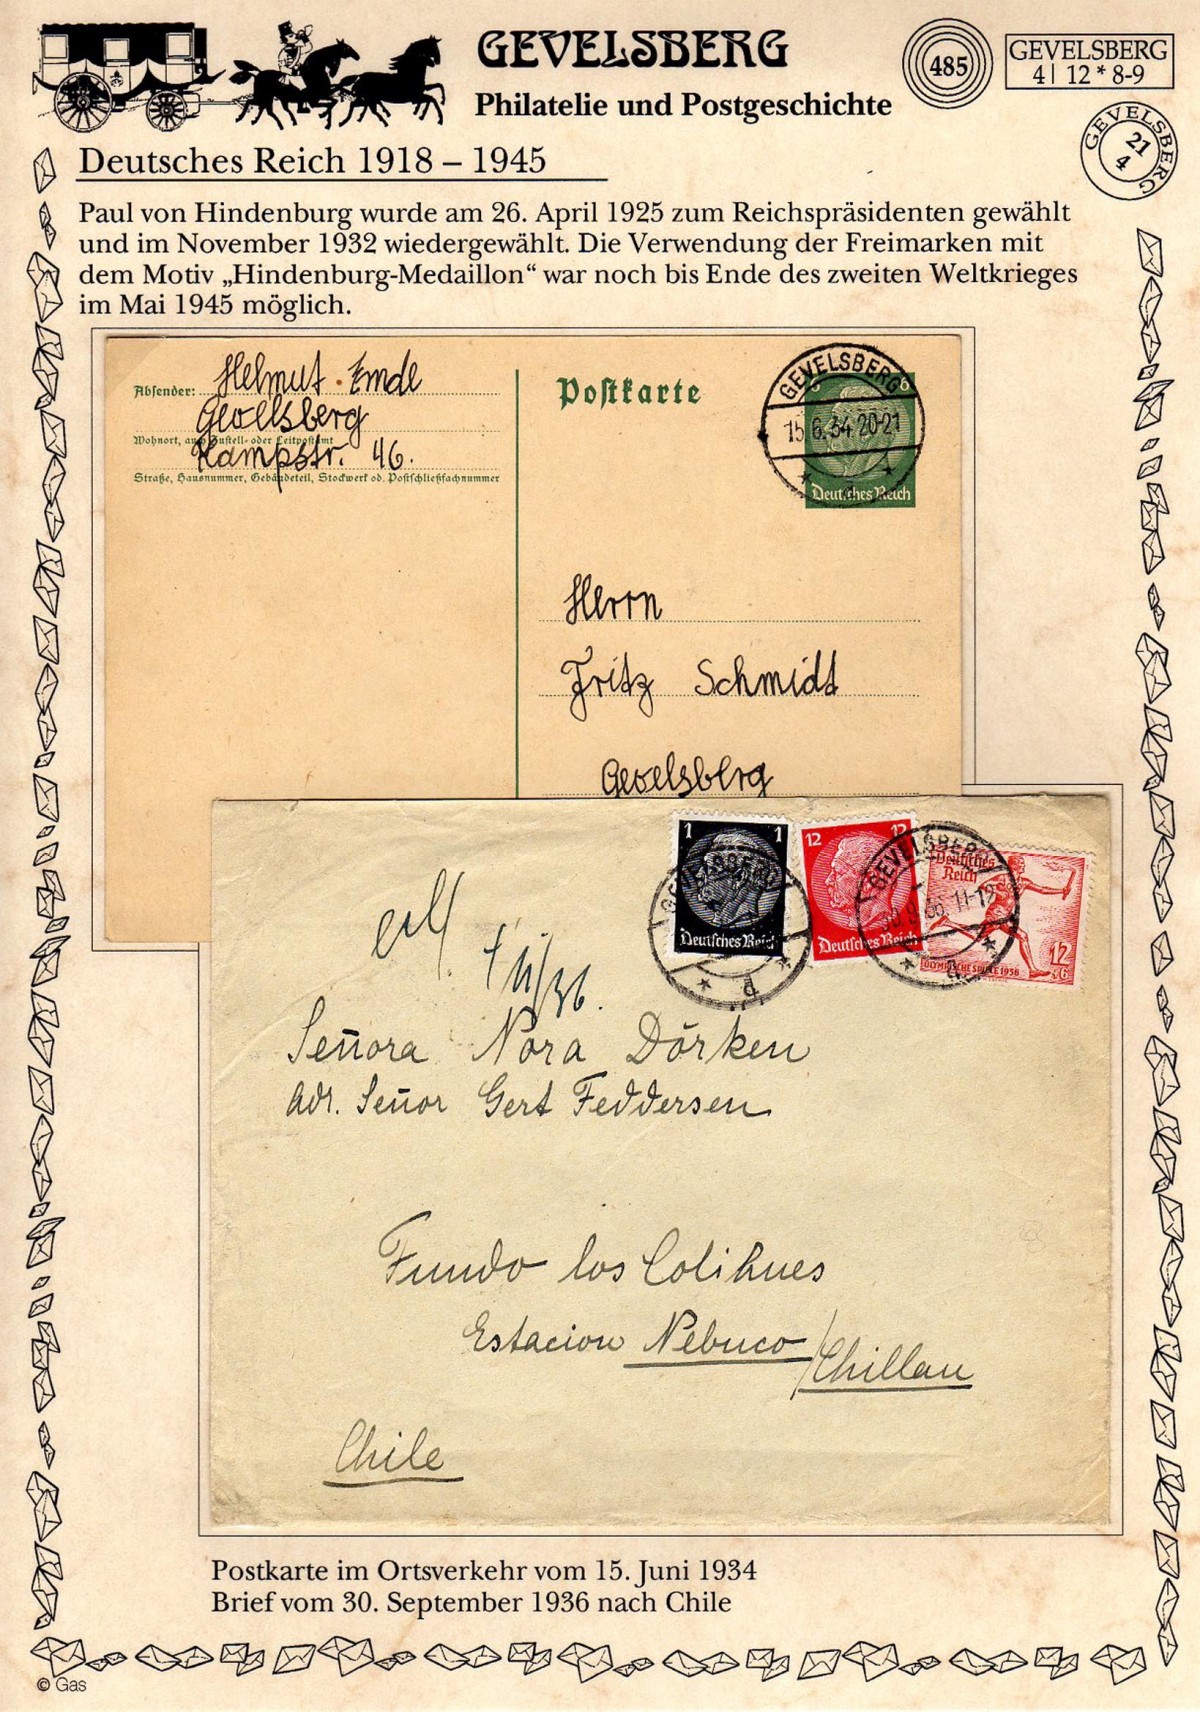 GEVELSBERG
Philatelie und Postgeschichte
485
GEVELSBERG
4| 12 * 8-9
GEVELSBERG
21
4
Deutsches Reich 1918 – 1945
Paul von Hindenburg wurde am 26. April 1925 zum Reichspräsidenten gewählt
und im November 1932 wiedergewählt. Die Verwendung der Freimarken mit
dem Motiv „Hindenburg-Medaillon“ war noch bis Ende des zweiten Weltkrieges
im Mai 1945 möglich.
Absender: Helmut Emde
Gevelsberg
Wohnort, auch Zustell- oder Leitpostamt
Kampstr. 46.
Straße, Hausnummer, Gebäudeteil, Stockwerk od. Postschließfachnummer
Postkarte
GEVELSBERG
6
15.6.34.20-21
Deutsches Reich
Herrn
Fritz Schmidt
Gevelsberg
1 1
GEVELSBERG
Deutsches Reich
12 12
Deutsches Reich
GEVELSBERG
30.9.36.11-12
Deutsches
Reich
12
OLYMPISCHE SPIELE 1936
/36.
Señora Nora Dörken
adr. Señor Gert Feddersen
Fundo los Colihues
Estacion Nebuco/Chillan
Chile
Postkarte im Ortsverkehr vom 15. Juni 1934
Brief vom 30. September 1936 nach Chile
© Gas